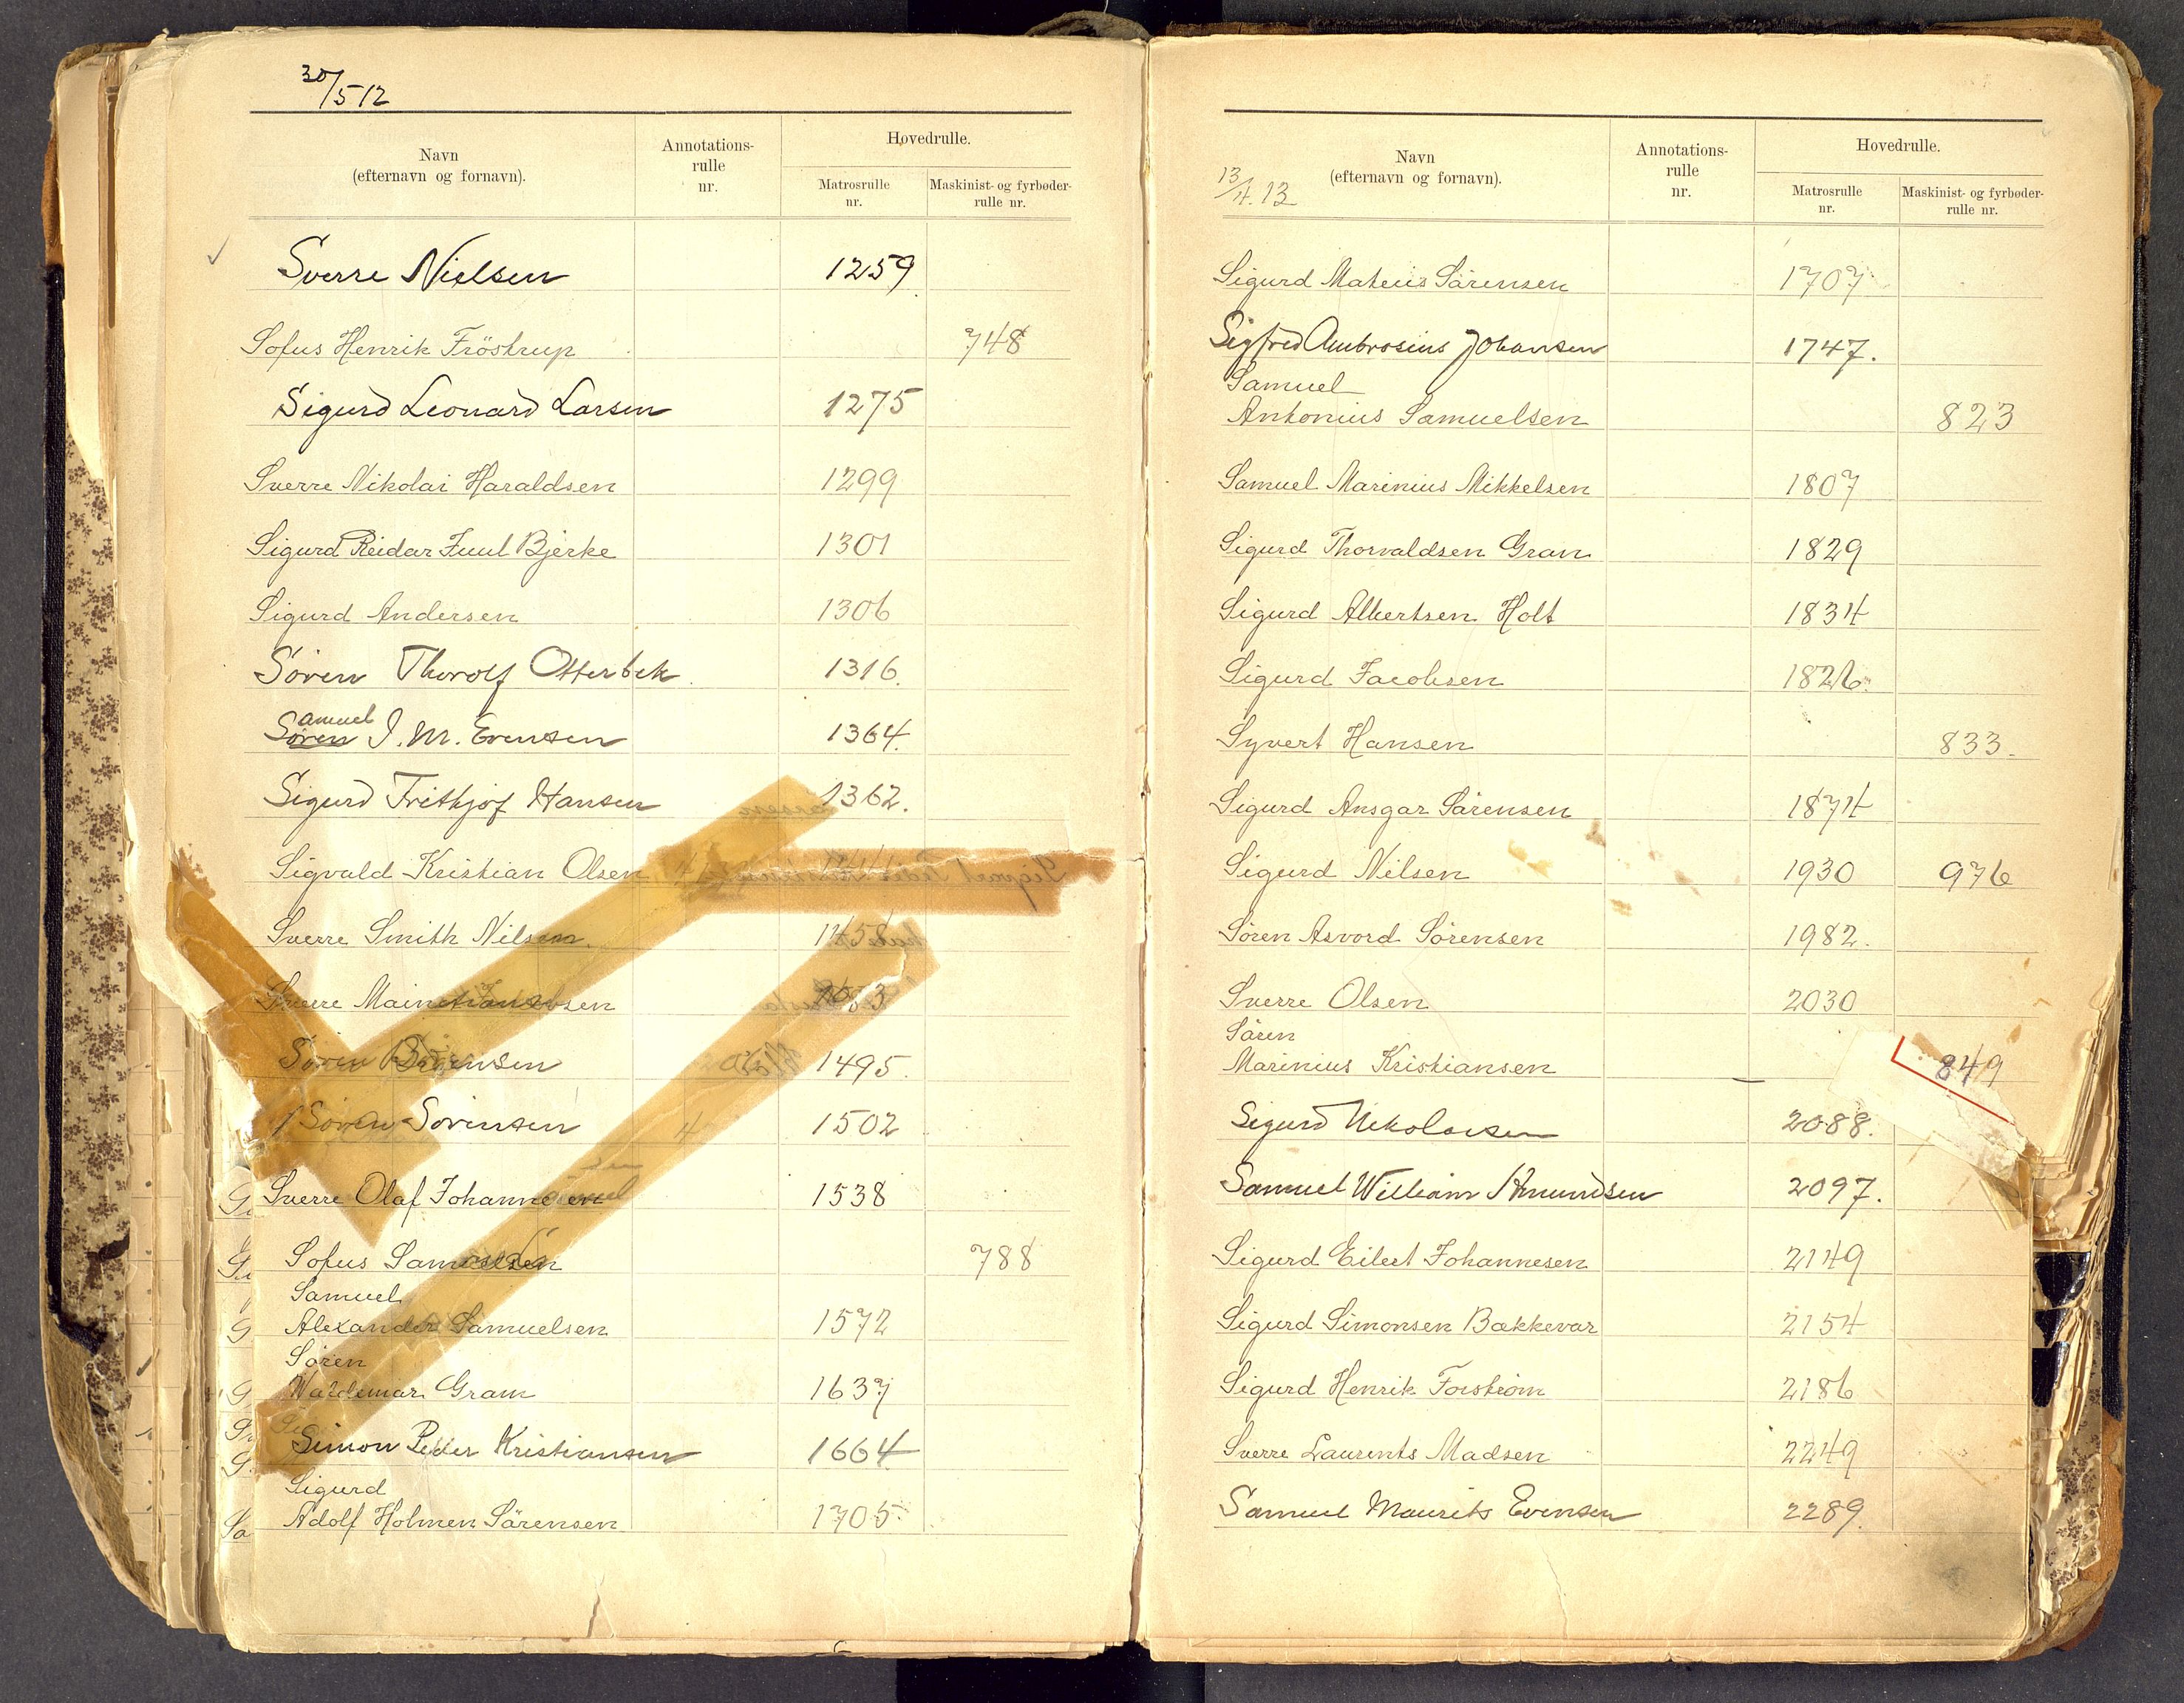 30/5 12
Navn
(efternavn og fornavn).
Annotations-
rulle
nr.
Hovedrulle.
Matrosrulle
nr.
Maskinist- og fyrbøder-
rulle nr.
Sverre Nielsen 1259
Sofus Henrik Fröstrup 748
Sigurd Leonard Larsen 1275
Sverre Nikolai Haraldsen 1299
Sigurd Reidar Juul Bjerke 1301
Sigurd Andersen 1306
Søren Thorolf Otterbek 1316.
amuel
Søren J. M. Evensen 1364.
Sigurd Frithjof Hansen 1362.
Sigvald Kristian Olsen
Sverre Smith Nilsen 1458
Sverre
Søren Sörensen 1495.
Søren Sörensen 1502
Sverre Olaf Johannesen 1538
Sofus Samuelsen 788
Samuel
Alexander Samuelsen 1572
Søren
Waldemar Gram 1637
Simon Peder Kristiansen 1664
Sigurd
Adolf Holmen Sörensen 1705
13/4.13
Navn
(efternavn og fornavn).
Annotations-
rulle
nr.
Hovedrulle.
Matrosrulle
nr.
Maskinist- og fyrbøder-
rulle nr.
Sigurd Mateus Sörensen 1707
Sigfred Ambrosius Johansen 1747.
Samuel
Antonius Samuelsen 823
Samuel Marinius Mikkelsen 1807
Sigurd Thorvaldsen Gran 1829
Sigurd Albertsen Holt 1834
Sigurd Jacobsen 1826.
Syvert Hansen 833.
Sigurd Ansgar Sörensen 1874
Sigurd Nilsen 1930 976
Sören Asvord Sörensen 1982.
Sverre Olsen 2030
Sören
Marinius Kristiansen 849
Sigurd Nikolaisen 2088.
Samuel William Amundsen 2097.
Sigurd Eilert Johannesen 2149
Sigurd Simonsen Bækkevar 2154
Sigurd Henrik Forström 2186
Sverre Laurents Madsen 2249
Samuel Maurits Evensen 2289.